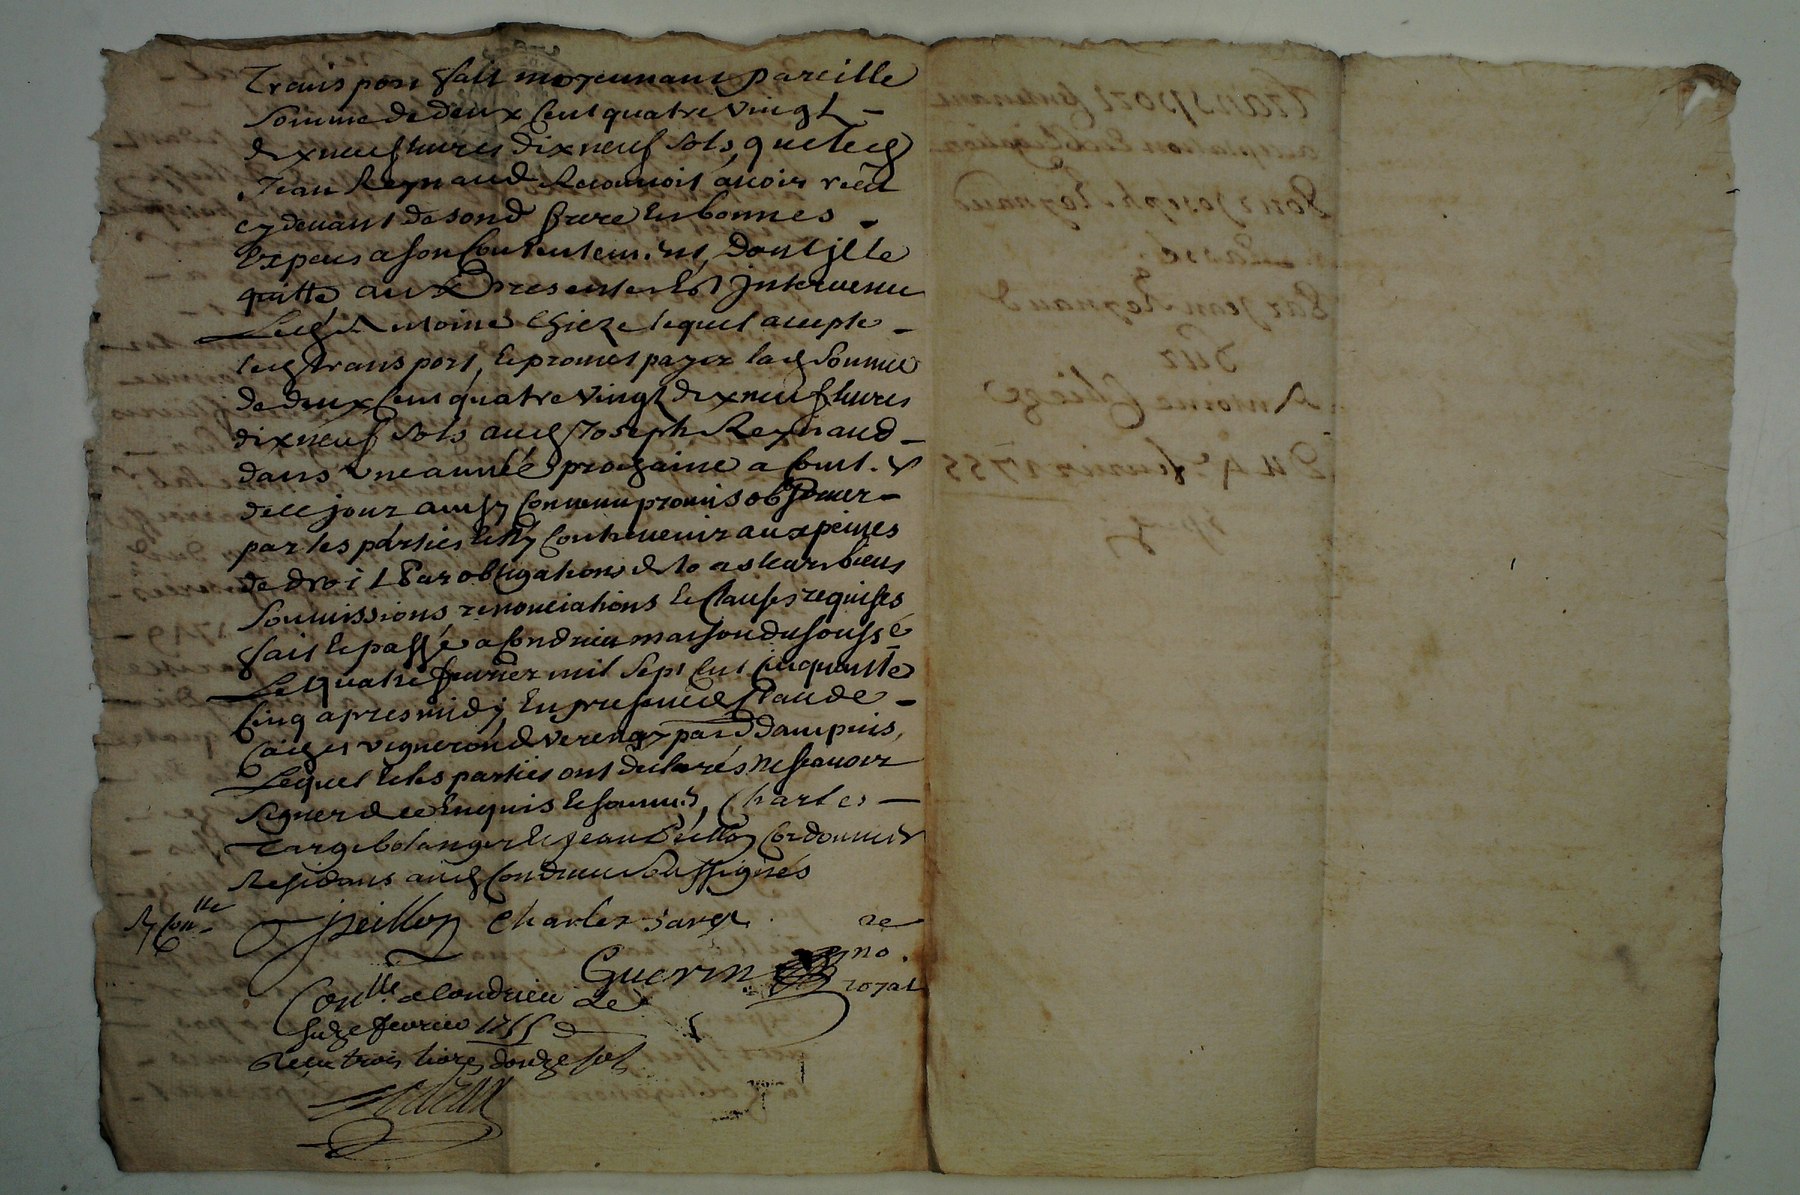 Transport fait moyennant pareille
Somme de deux Cent quatre vingt
dixneuf livres dix neuf sols, que led
Jean Reynaud Reconnoit avoir reçu
cy devant de sond frere En bonnes
Especes a son Contentement, dont Il le
quitte aux Presentes Est Intervenu
Led Antoine Chieze lequel accepte
led transport, Et promet payer lad Somme
de deux Cent quatre vingt dixneuf livres
dixneuf sols aud Joseph Reynaud
dans une année prochaine a Compt.
de ce jour ainsy Convenu promis observer
par les parties Et ny Contrevenir aux peines
de droit Par obligations de leurs biens
Soumissions, renonciations Et Clauses requises
fait Et passé a Condrieu maison du soussé
Le quatre fevrier mil Sept Cent Cinquante
Cinq apres midy, En presence de Claude
vigneron de verenay par d'ampuis,
Lequel Et les parties ont declarés ne sçavoir
Signer de ce Enquis Et sommés, Charles
Targe bolanger Et Jean Peillon Cordonnier
Residans aud Condrieu Soussignés
J peillon Charles Targe
Guerin no. royal
Conlle a Condrieu le
fevrier 1755
Reçu trois livres douze sols
Transport Contenant
acceptation et obligation
Pour Joseph Reynaud
Par Jean Reynaud
Sur
Antoine Chieze
Du 4e fevrier 1755